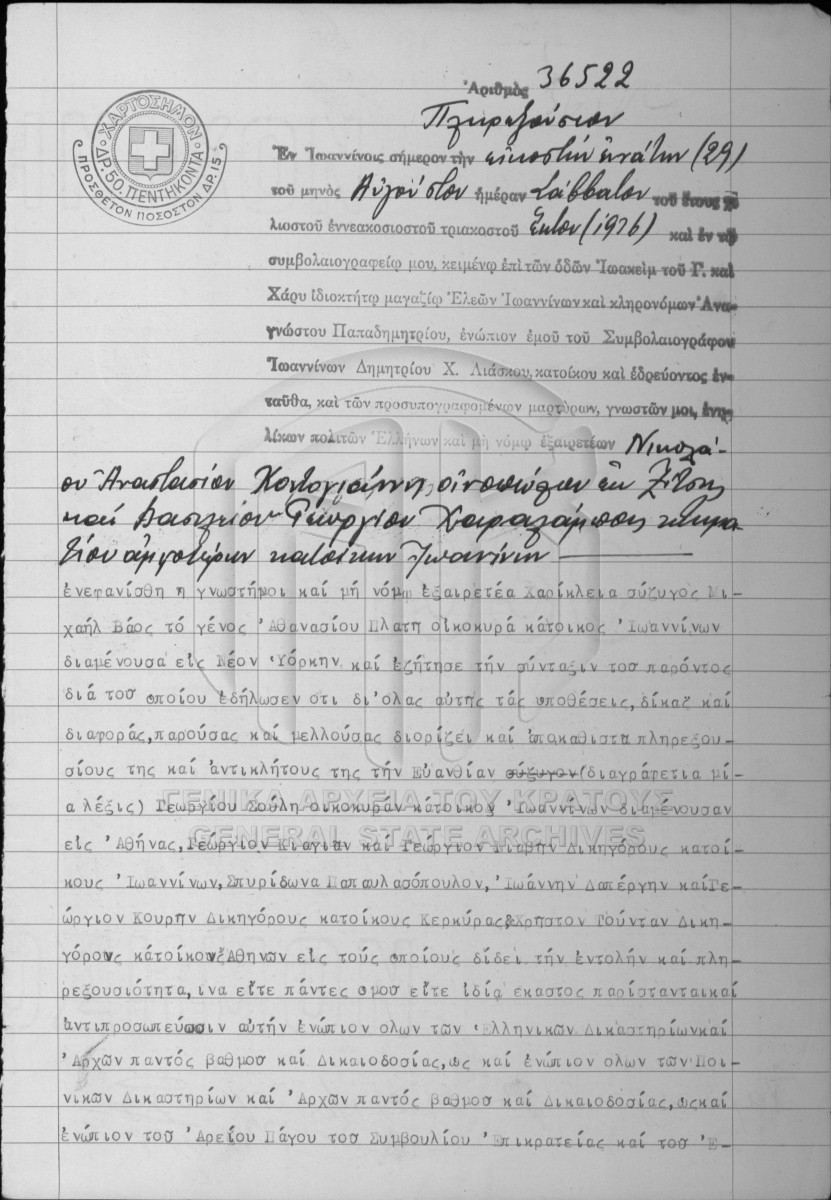 ΧΑΡΤΟΣΗΜΟΝ
ΔΡ.50.ΠΕΝΤΗΚΟΝΤΑ
ΠΡΟΣΘΕΤΟΝ ΠΟΣΟΣΤΟΝ ΔΡ.15
Ἀριθμὸς 36522
Πληρεξούσιον
Ἐν Ἰωαννίνοις σήμερον τὴν εἰκοστήν ἐνάτην (29)
τοῦ μηνὸς Αὐγούστου ἡμέραν Σάββατον τοῦ ἔτους χι
λιοστοῦ ἐννεακοσιοστοῦ τριακοστοῦ ἕκτου (1936) καὶ ἐν τῷ
συμβολαιογραφείῳ μου, κειμένῳ ἐπὶ τῶν ὁδῶν Ἰωακεὶμ τοῦ Γ. καὶ
Χάρυ ἰδιοκτήτῳ μαγαζίῳ Ἐλεῶν Ἰωαννίνων καὶ κληρονόμων Ἀνα-
γνώστου Παπαδημητρίου, ἐνώπιον ἐμοῦ τοῦ Συμβολαιογράφου
Ἰωαννίνων Δημητρίου Χ. Λιάσκου, κατοίκου καὶ ἑδρεύοντος ἐν-
ταῦθα, καὶ τῶν προσυπογραφομένων μαρτύρων, γνωστῶν μοι, ἐνη-
λίκων πολιτῶν Ἑλλήνων καὶ μὴ νόμῳ ἐξαιρετέων Νικολά-
ου Ἀναστασίου Χατζογιάννη οἰνοπώλου ἐκ Ζίτσης
καί Βασιλείου Γεωργίου Χαραλάμπους κτημα-
τίου ἀμφοτέρων κατοίκων Ἰωαννίνων
ἐνεφανίσθη η γνωστήμοι καί μή νόμῳ ἐξαιρετέα Χαρίκλεια σύζυγος Μι-
χαήλ Βάος τό γένος Ἀθανασίου Πλατη οἰκοκυρά κάτοικος Ἰωαννίνων
διαμένουσα εἰς Νέον Ὑόρκην καί ἐζήτησε τήν σύνταξιν τοσ παρόντος
διά τοσ οποίου ἐδήλωσεν οτι δι'ολας αὐτῆς τάς υποθέσεις, δίκας καί
διαφοράς, παρούσας καί μελλούσας διορίζει καί ἀποκαθιστα πληρεξου-
σίους της καί ἀντικλήτους της τήν Εὐανθίαν σύζυγον (διαγράφεται μί-
α λέξις) Γεωργίου Σούλη οικοκυράν κάτοικον Ἰωαννίνων διαμένουσαν
εἰς Ἀθήνας, Γεώργιον Κίαγιαν καί Γεώργιον Γιαβήν Δικηγόρους κατοί-
κους Ἰωαννίνων, Σπυρίδωνα Παπαυλασόπουλον, Ἰωάννην Δαπέργην καίΓε-
ώργιον Κουρην Δικηγόρους κατοίκους Κερκύρας&Χρηστον Τούνταν Δικη-
γόρους κάτοίκουςἈθηνων εἰς τους οποίους δίδει τήν ἐντολήν καί πλη-
ρεξουσιότητα, ινα εἴτε πάντες ομοσ εἴτε ἰδίᾳ εκαστος παρίστανταικαί
ἀντιπροσωπεύωσιν αὐτήν ἐνώπιον ολων τῶν Ἑλληνικῶν Δικαστηρίωνκαί
Ἀρχῶν παντός βαθμοσ καί Δικαιοδοσίας, ως καί ἐνώπιον ολων τῶν Ποι-
νικῶν Δικαστηρίων καί Ἀρχῶν παντός βαθμοσ καί Δικαιοδοσίας, ωςκαί
ἐνώπιον τοσ Ἀρείου Πάγου τοσ Συμβουλίου Ἐπικρατείας καί τοσ Ἐ-
ΓΕΝΙΚΑ ΑΡΧΕΙΑ ΤΟΥ ΚΡΑΤΟΥΣ
GENERAL STATE ARCHIVES